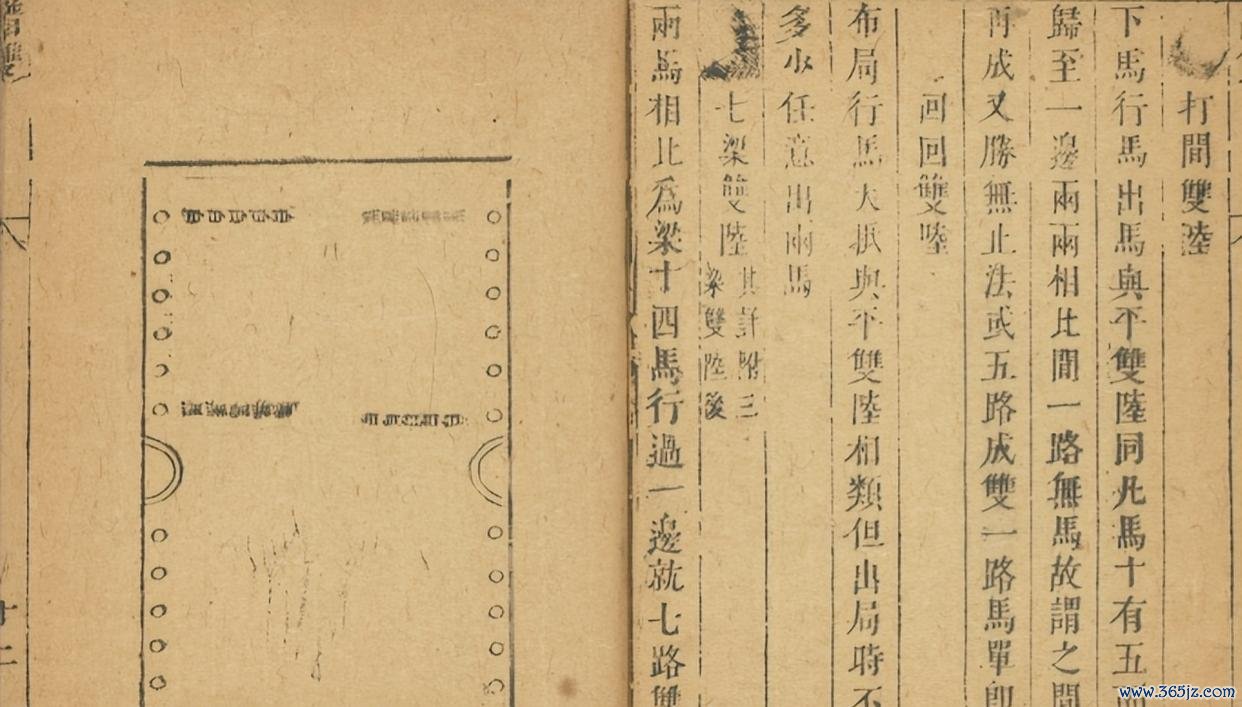 打間雙陸
下馬行馬出馬與平雙陸同凡馬十有五
歸至一邊兩兩相比間一路無馬故謂之間
再成又勝無止法或五路成雙一路馬單即
回回雙陸
布局行馬大抵與平雙陸相類但出局時不
多少任意出兩馬
七梁雙陸
其詳附三
梁雙陸後
兩馬相比為梁十四馬行過一邊就七路雙
十二
www.365jz.com